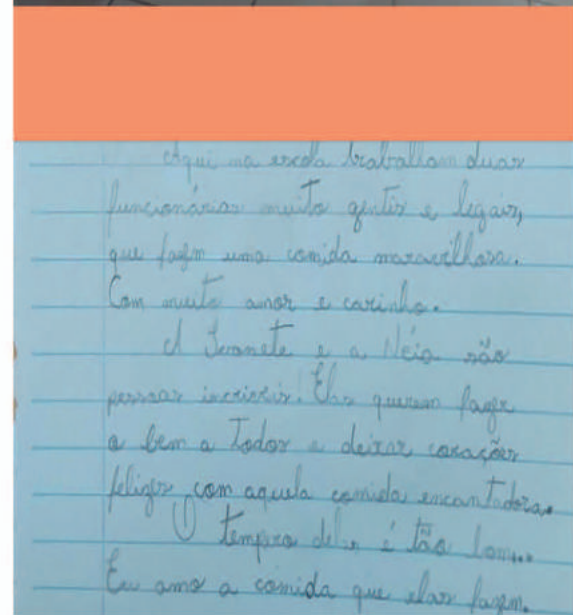 Aqui na escola trabalham duas
funcionárias muito gentis e legais,
que fazem uma comida maravilhosa.
Com muito amor e carinho.
A Ivonete e a Néia são
pessoas incríveis! Elas querem fazer
o bem a Todos e deixar corações
felizes com aquela comida encantadora.
O tempero delas é tão bom...
Eu amo a comida que elas fazem.